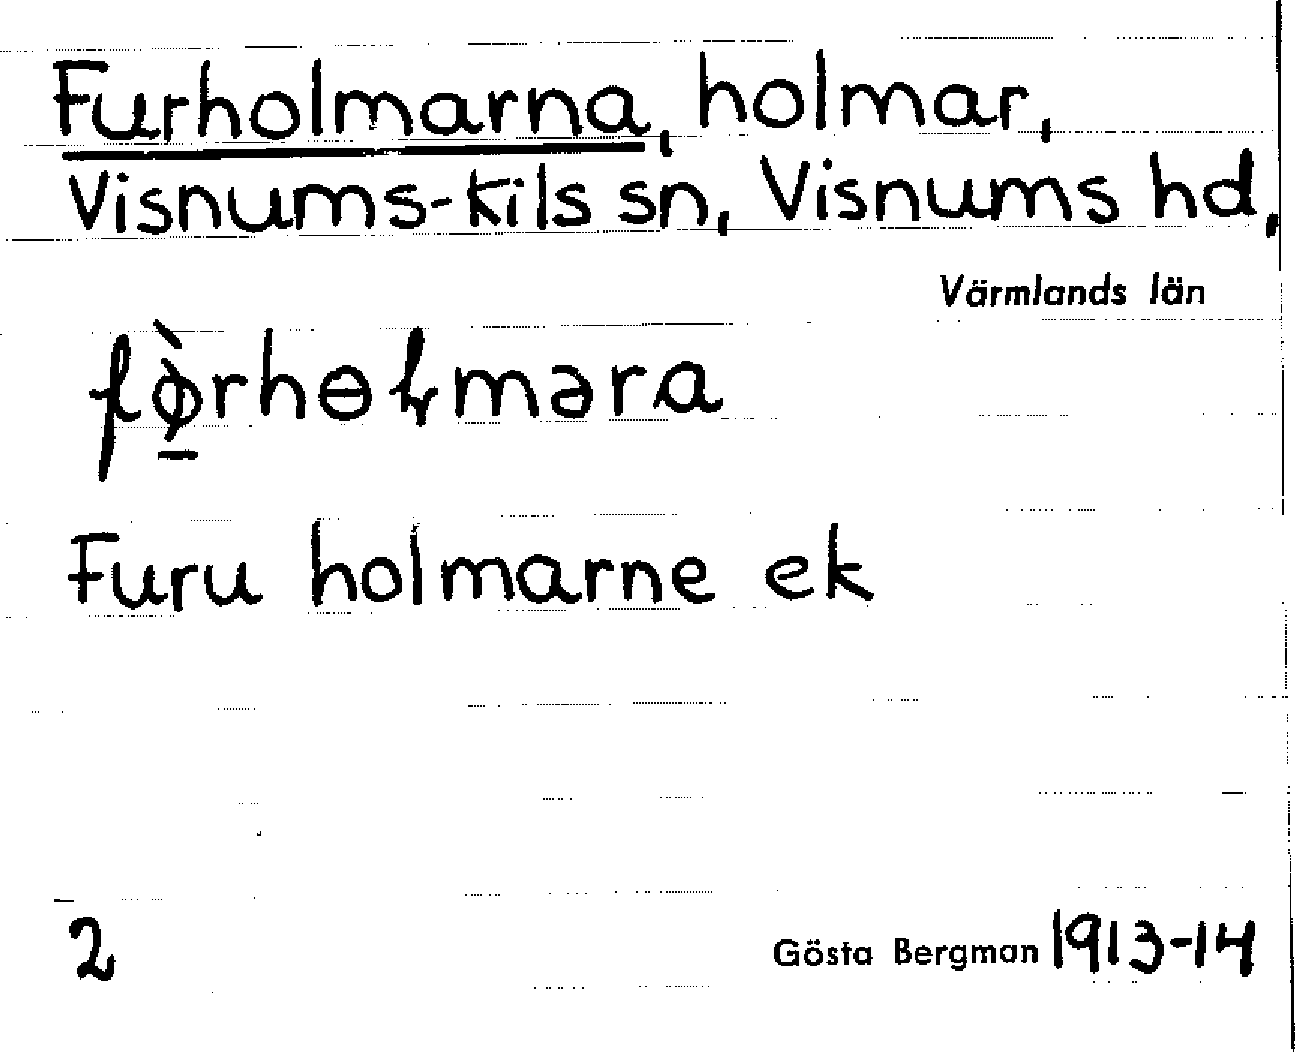 Furholmarna, holmar,
Visnums-Kils sn, Visnums hd,
Värmlands län
Furu holmarne ek
2
Gösta Bergman 1913-14